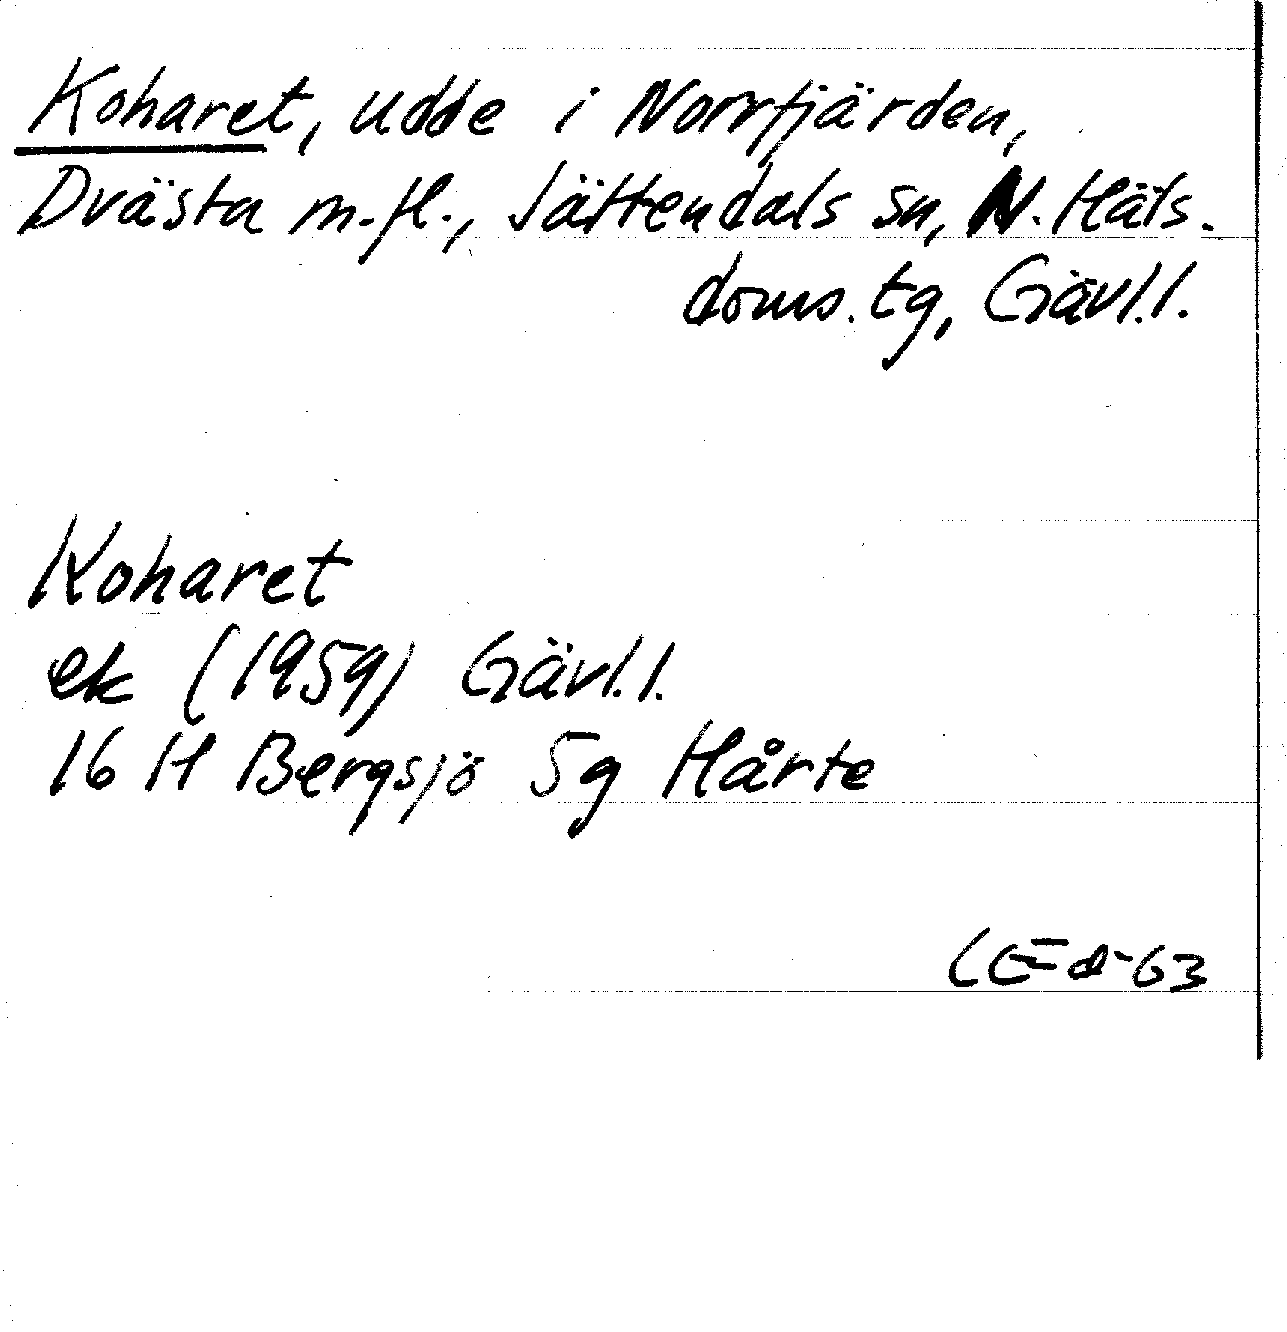 Koharet, udde i Norrfjärden,
Dvästa m.fl., Jättendals sn, N. Häls.
doms. tg, Gävl.l.
Koharet
ek (1959) Gävl.l.
16 H Bergsjö 5g Hårte
63